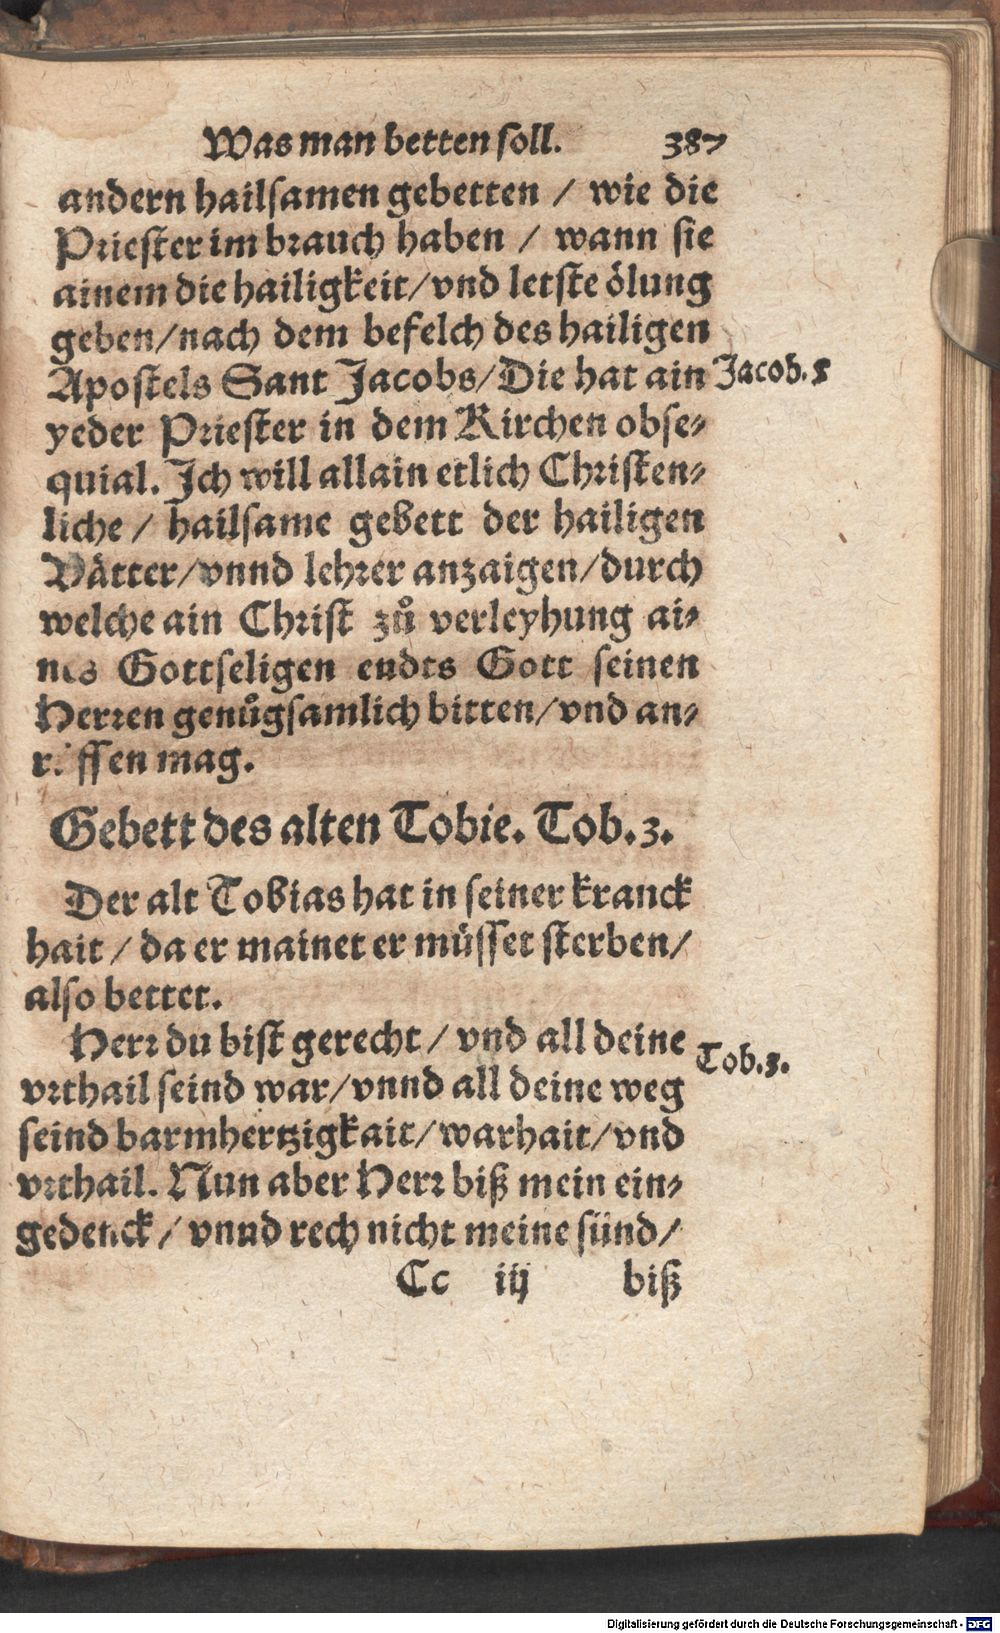 Was man betten soll. 387
andern hailsamen gebetten / wie die
Priester im brauch haben / wann sie
ainem die hailigkeit/vnd letste ölung
geben/nach dem befelch des hailigen
Apostels Sant Jacobs/Die hat ain Jacob. 5
yeder Priester in dem Kirchen obse-
quial. Ich will allain etlich Christen-
liche / hailsame gebett der hailigen
Vätter/vnnd lehrer anzaigen/durch
welche ain Christ zů verleyhung ai-
nes Gottseligen endts Gott seinen
Herren genůgsamlich bitten/vnd an-
mag.
Gebett des alten Tobie. Tob. 3.
Der alt Tobias hat in seiner kranck
hait / da er mainet er müsset sterben/
also bettet.
Herr du bist gerecht / vnd all deine
vrthail seind war/vnnd all deine weg Tob. 3.
seind barmhertzigkait/warhait/vnd
vrthail. Nun aber Herr biß mein ein-
gedenck / vnnd rech nicht meine sünd/
Cc iij biß
Digitalisierung gefördert durch die Deutsche Forschungsgemeinschaft - DFG